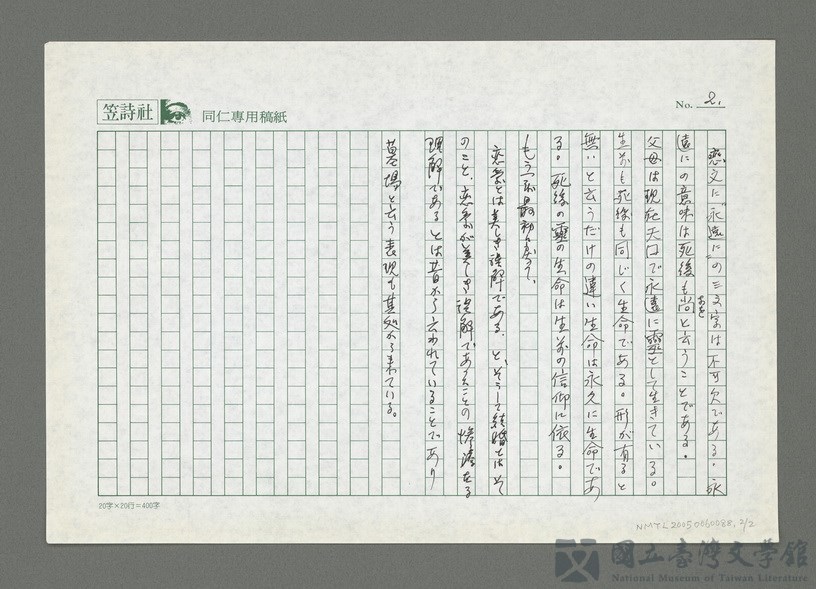 笠詩社
同仁専用稿紙
No. 2.
恋文に「永遠に」の三文字は不可欠である。永
遠にの意味は死後も尚と云うことである。
なを
父母は現在天口で永遠に靈として生きている。
生前も死後も同じく生命である。形が有ると
無いと云うだけの違い生命は永久に生命であ
る。死後の靈の生命は生前の信仰に依る。
もう
恋愛とは美しき誤解である、と、そうして結婚とは
のこと、恋愛が美しき誤解であることの惨
理解であるとは昔から云われていることであり
墓場と云う表現も其処から来ている。
20字×20行=400字
NMTL20050060088, 2/2
國立臺灣文学館
National Museum of Taiwan Literature